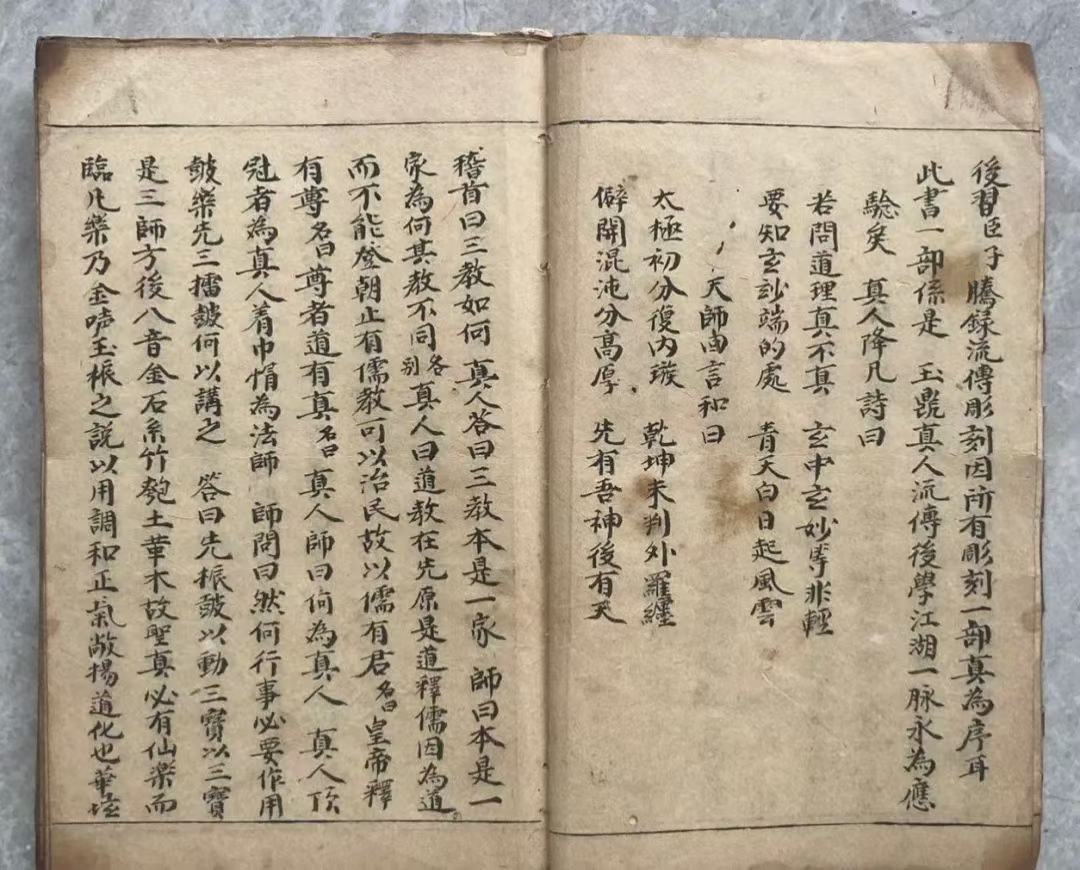 後習臣子 騰録流傳彫刻因所有彫刻一部真為序耳
此書一部係是 玉鼎真人流傳後學江湖一脉永為應
驗矣 真人降凡詩曰
若問道理真不真 玄中玄妙專非輕
要知玄妙端的處 青天白日起風雲
天師由言和曰
太極初分復內璇 乾坤未判外羅纏
僻開混沌分高厚 先有吾神後有天
稽首曰三教如何 真人答曰三教本是一家 師曰本是一
家為何其教不同各別真人曰道教在先原是道釋儒因為道
而不能登朝止有儒教可以治民故以儒有君名曰皇帝釋
有尊名曰尊者道有真名曰真人師曰何為真人 真人頂
冠者為真人着巾幘為法師 師問曰然何行事必要作用
皷樂先三擂皷何以講之 答曰先振皷以動三寶以三寶
是三師方後八音金石糸竹匏土革木故聖真必有仙樂而
臨凡樂乃金声玉振之說以用調和正氣敞揚道化也華